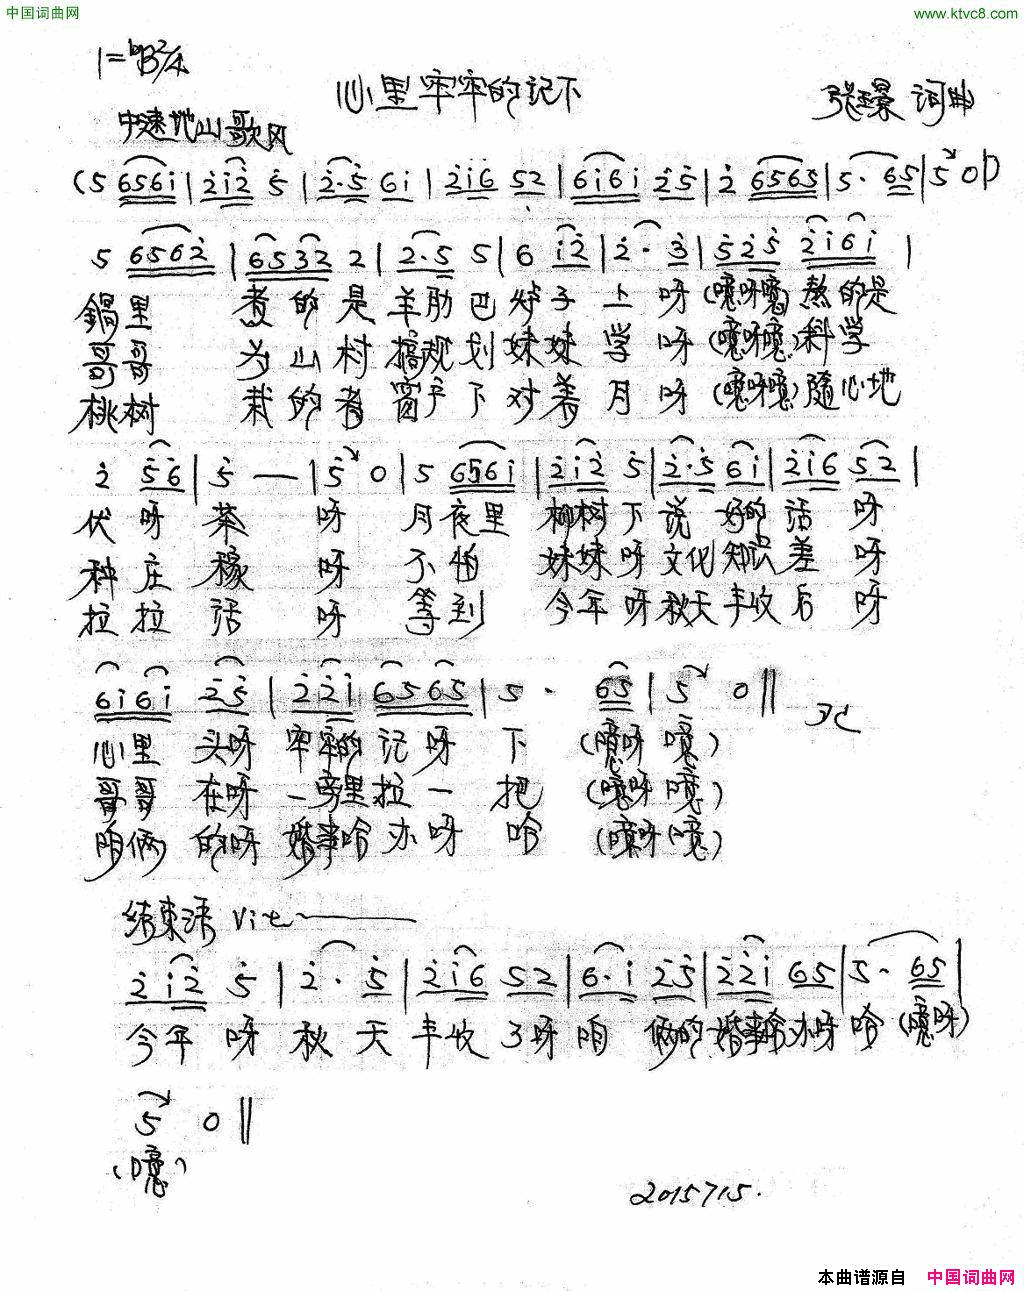 中国词曲网
www.ktvc8.com
1=♭B 2/4
心里牢牢的记下
词曲
中速地山歌风
(5 656i | 2i2 5 | 2·5 6i | 2i6 52 | 6i6i 25 | 2 6565 | 5· 65 | 5 0 |)
5 6562 | 6532 2 | 2·5 5 | 6 i2 | 2· 3 | 525 2i6i |
鍋里 煮的是羊肋巴炉子上呀(噫呀噫)熬的是
哥哥 为山村搞规划妹妹学呀(噫呀噫)科学
桃树 栽的者窗户下对着月呀(噫呀噫)随心地
2 56 | 5 — | 5 0 | 5 656i | 2i2 5 | 2·5 6i | 2i6 52 |
伏呀茶呀 月夜里 柳树下说好的话呀
种庄稼呀 不怕 妹妹呀文化知识差呀
拉拉话呀 等到 今年呀秋天丰收后呀
6i6i 25 | 22i 6565 | 5· 65 | 5 0 ||
心里头呀牢牢的记呀下(噫呀噫)
哥哥在呀一旁里拉一把(噫呀噫)
咱俩的呀婚事哈办呀哈(噫呀噫)
结束活 Vit
2i2 5 | 2· 5 | 2i6 52 | 6·i 25 | 22i 65 | 5· 65 |
今年呀秋天丰收了呀咱俩的婚事哈办呀哈(噫呀)
5 0 ||
(噫)
2015715.
本曲谱源自 中国词曲网